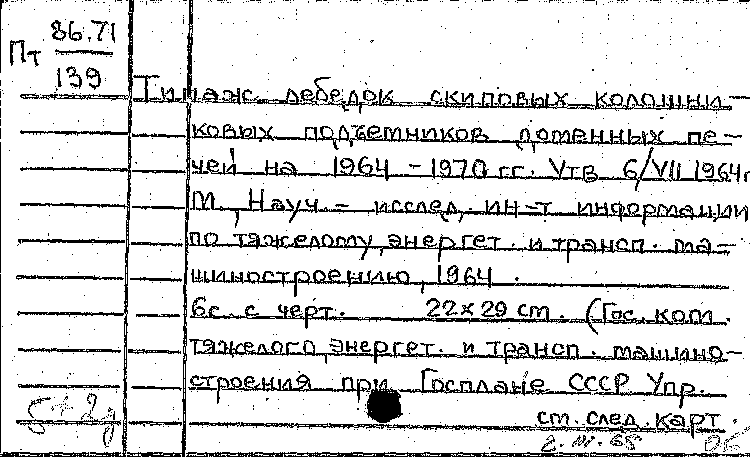 Пт 86.71
139
Типаж лебедок скиповых колошни-
ковых подъемников доменных пе-
чей на 1964-1970 гг. Утв 6/VII 1964г
М., Науч.- исслед. ин-т информации
по тяжелому, энергет. и трансп. ма-
шиностроению, 1964.
6с. с черт. 22×29 см. (Гос. ком.
тяжелого, энергет. и трансп. машино-
строения при Госплане СССР Упр.
см. след. карт.